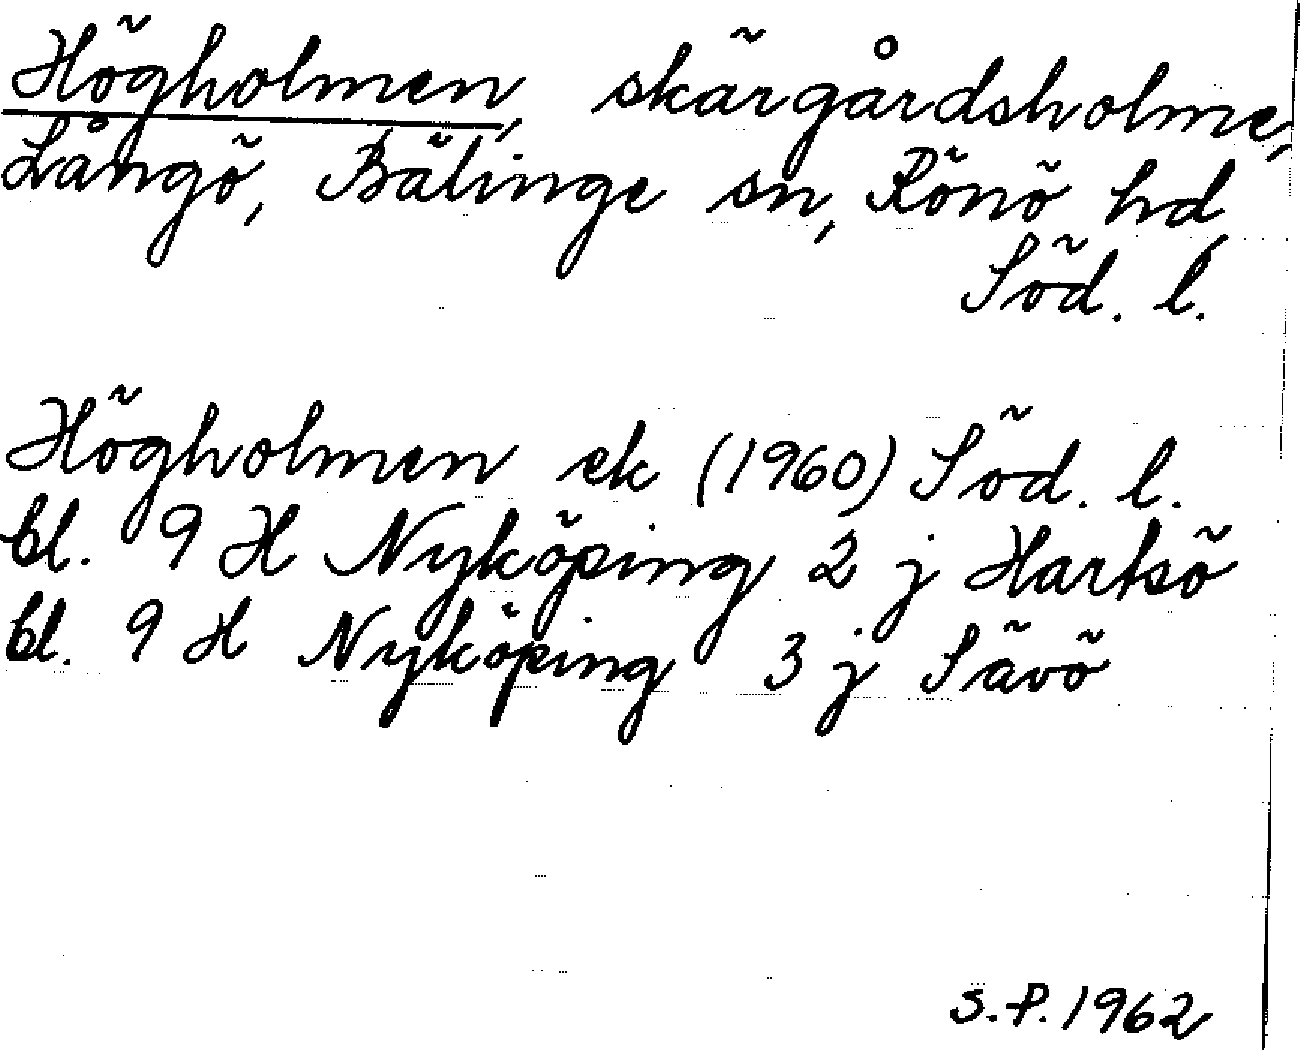 Högholmen, skärgårdsholme,
Långö, Bälinge sn, Rönö hd,
Söd. l.
Högholmen ek (1960) Söd. l.
bl. 9 H Nyköping 2 j Hartsö
bl. 9 H Nyköping 3 j Sävö
S.P. 1962